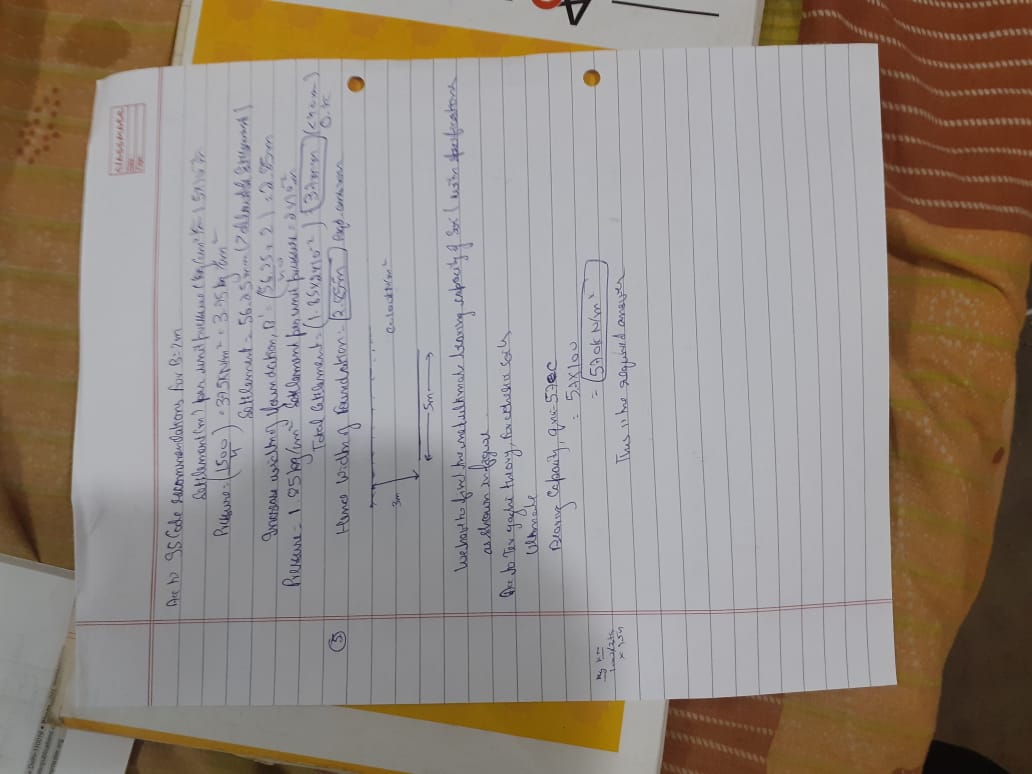 CLASSMATE
Acc to IS Code recommendations for B=2m
Settlement(m) per unit pressure
Pressure = (1500/4) = 375kN/m² = 3.75 kg/cm²
Settlement = 56.25mm (> allowable settlement)
Increase width of foundation, B' = (5625 × 2) = 2.85m
Pressure = 1.85 kg/cm² Settlement per unit pressure = 2×10⁻²m
Total Settlement = (1.85×2×10⁻²) (37mm) (<40mm)
O.K
Hence width of foundation = (2.85m)
5
3m
c=100kN/m²
5m
We have to find the net ultimate bearing capacity of soil with specifications
as shown in figure
Acc to Terzaghi theory, for cohesive soils
Ultimate
Bearing Capacity, qnu = 5.7 C
= 5.7×100
= (570kN/m²)
This is the required answer